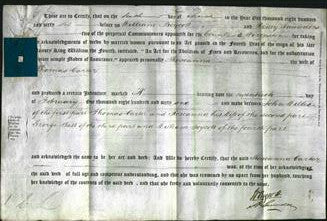 These are to Certify, that on the sixth day of March in the Year One thousand eight hundred
and sixty six before us William Boycott and Henry Saunders
two of the perpetual Commissioners appointed for the for taking
acknowledgments of deeds by married women pursuant to an Act passed in the Fourth year of the reign of his late
Majesty King William the Fourth, intituled, "An Act for the Abolition of Fines and Recoveries, and for the substitution of
more simple Modes of Assurance," appeared personally Hosannah the wife of
Thomas Carter
and produced a certain Indenture, marked A bearing date
of February One thousand eight hundred and sixty six and made between John
of the first part Thomas Carter and Hosannah his wife of the second part
George of the third part and William Boycott of the fourth part
and acknowledged the same to be her act and deed: And We do hereby Certify, that the said Hosannah Carter
was, at the time of her acknowledging
the said deed of full age and competent understanding, and that she was examined by us apart from her husband, touching
her knowledge of the contents of the said deed, and that she freely and voluntarily consented to the same.
W Boycott